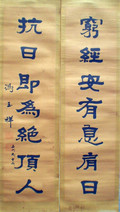 窮經安有息肩日
抗日即為絕頂人
馮玉祥